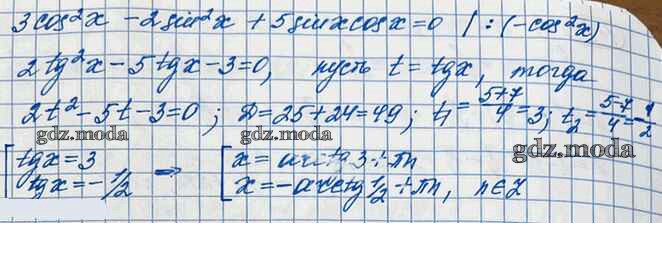 3cos²x - 2sin²x + 5sinxcosx = 0 | : (-cos²x)
2tg²x - 5tgx - 3 = 0, пусть t = tgx, тогда
2t² - 5t - 3 = 0; D = 25 + 24 = 49; t₁ = (5+7)/4 = 3; t₂ = (5-7)/4 = -1/2
gdz.moda gdz.moda gdz.moda
[tgx = 3 => [x = arctg 3 + πn
tgx = -1/2 x = -arctg 1/2 + πn, n∈Z